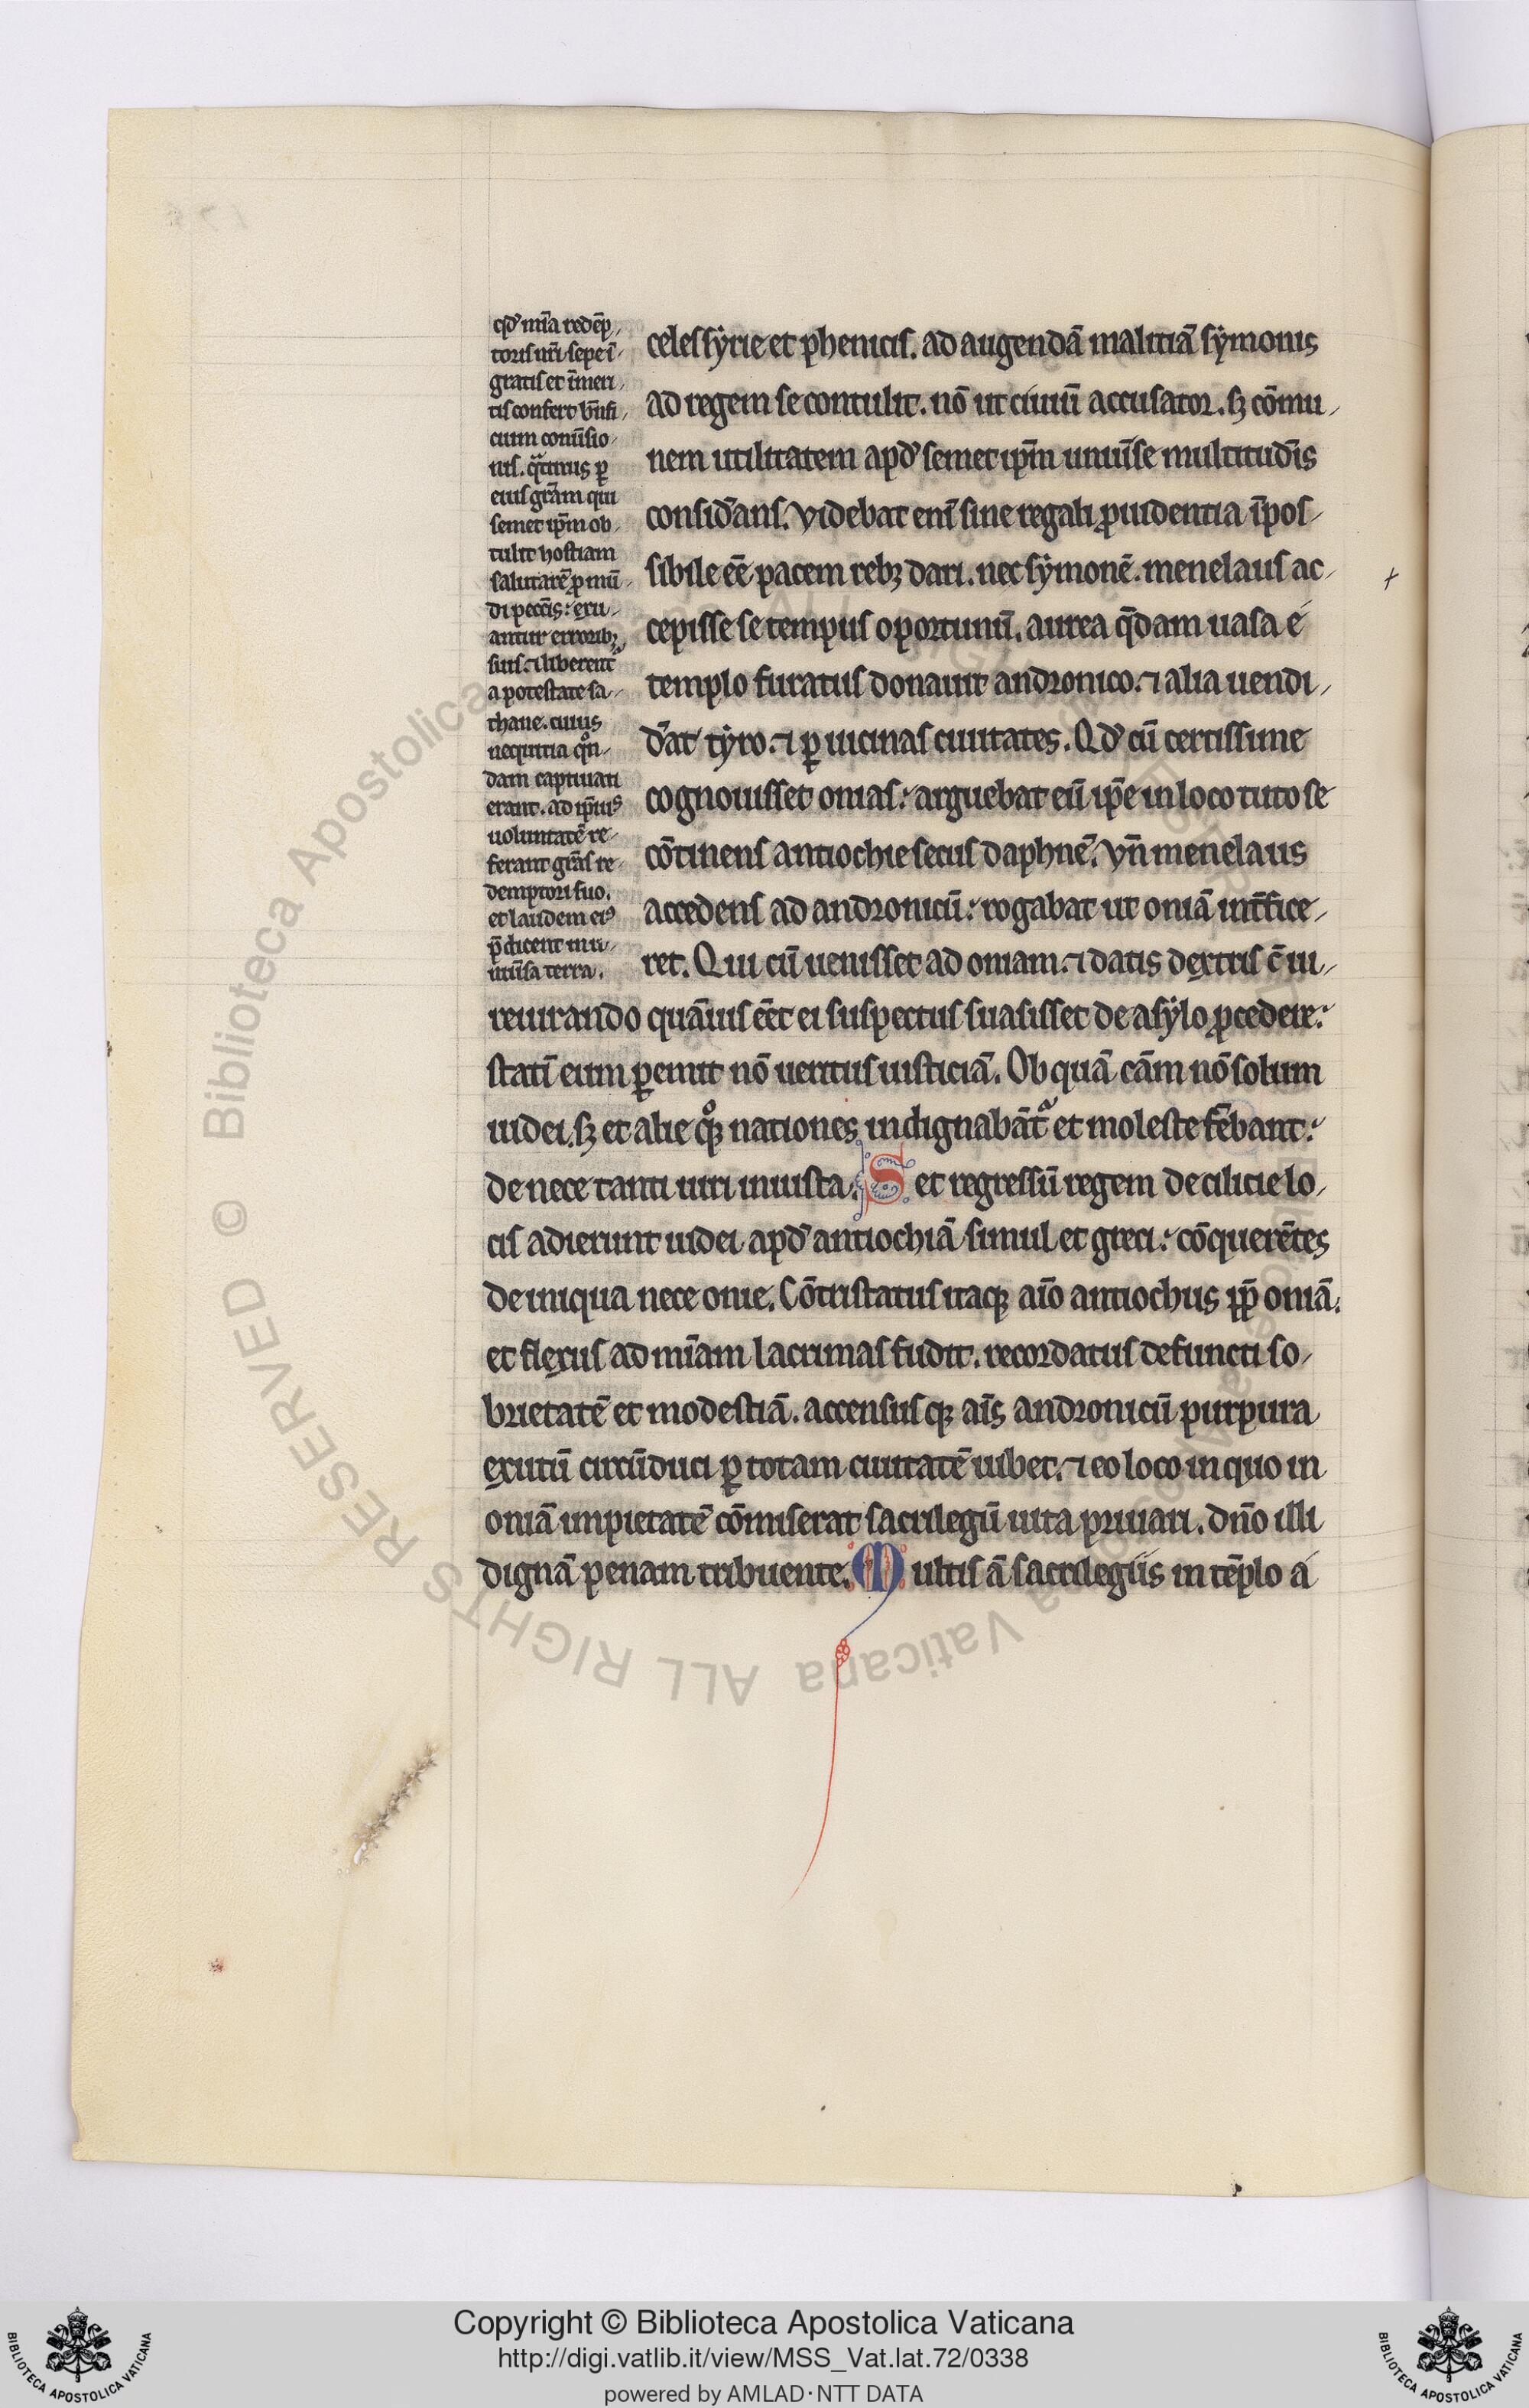 qd' mĩa redẽp
toris nr̃i sepe ĩ
gratis et ĩmeri
tis confert bñfi
cium conũsio
nis. qͣtinus ꝑ
eius grãm qui
semet ip̃m ob
tulit hostiam
salutarẽ ꝓ mũ
di peccĩs: exu
antur erroribꝫ
suis. ⁊ liberent᷑
a potestate sa
thane. cuius
nequitia qͦn
dam captiuati
erant. ad ip̃iꝰ
uoluntatẽ re
ferant gr̃as re
demptori suo.
et laudem eiꝰ
p̃dicent in u
niũsa terra.
celessẏrie et phenicis. ad augendã malitiã sẏmonis
ad regem se contulit. nõ ut ciuiũ accusator. sꝫ cõmu
nem utilitatem apd' semet ip̃m uniũse multitudĩs
consid̃ans. Videbat enĩ sine regali ꝓuidentia ĩpos
sibile eẽ pacem rebꝫ dari. nec sẏmonẽ. menelaus ac
cepisse se tempus oportunũ. aurea q̃dam uasa é
templo furatus donauit andronico. ⁊ alia uendi
d̃at tẏro. ⁊ ꝑ uicinas ciuitates. Qd' cũ certissime
cognouisset onias: arguebat eũ ip̃e in loco tuto se
cõtinens antiochie secus daphnẽ. Vñ menelaus
accedens ad andronicũ: rogabat ut oniã int̃fice
ret. Qui cũ uenisset ad oniam. ⁊ datis dextris c̃ iu
reiurando quãuis eẽt ei suspectus suasisset de asẏlo ꝓcedere:
statĩ eum ꝑemit nõ ueritus iusticiã. Ob quã cãm nõ solum
iudei. sꝫ et alie qͦꝫ nationes indignabãt᷑ et moleste fẽbant:
de nece tanti uiri iniusta. Set regressũ regem de cilicie lo
cis adierunt iudei apd' antiochiã simul et greci: cõquerẽtes
de iniqua nece onie. Cõtristatus itaqꝫ aĩo antiochus ꝓp̃ oniã.
et flexus ad mĩam lacrimas fudit. recordatus defuncti so
brietatẽ et modestiã. accensusqꝫ aĩs andronicũ purpura
exutũ circũduci ꝑ totam ciuitatẽ iubet. ⁊ eo loco in quo in
oniã impietatẽ cõmiserat sacrilegũ uita priuari. dño illi
dignã penam tribuente. Multis ã sacrilegiis in tẽplo á
Biblioteca Apostolica Vaticana ALL RIGHTS RESERVED ©
Copyright © Biblioteca Apostolica Vaticana
http://digi.vatlib.it/view/MSS_Vat.lat.72/0338
powered by AMLAD·NTT DATA
BIBLIOTECA APOSTOLICA VATICANA
BIBLIOTECA APOSTOLICA VATICANA